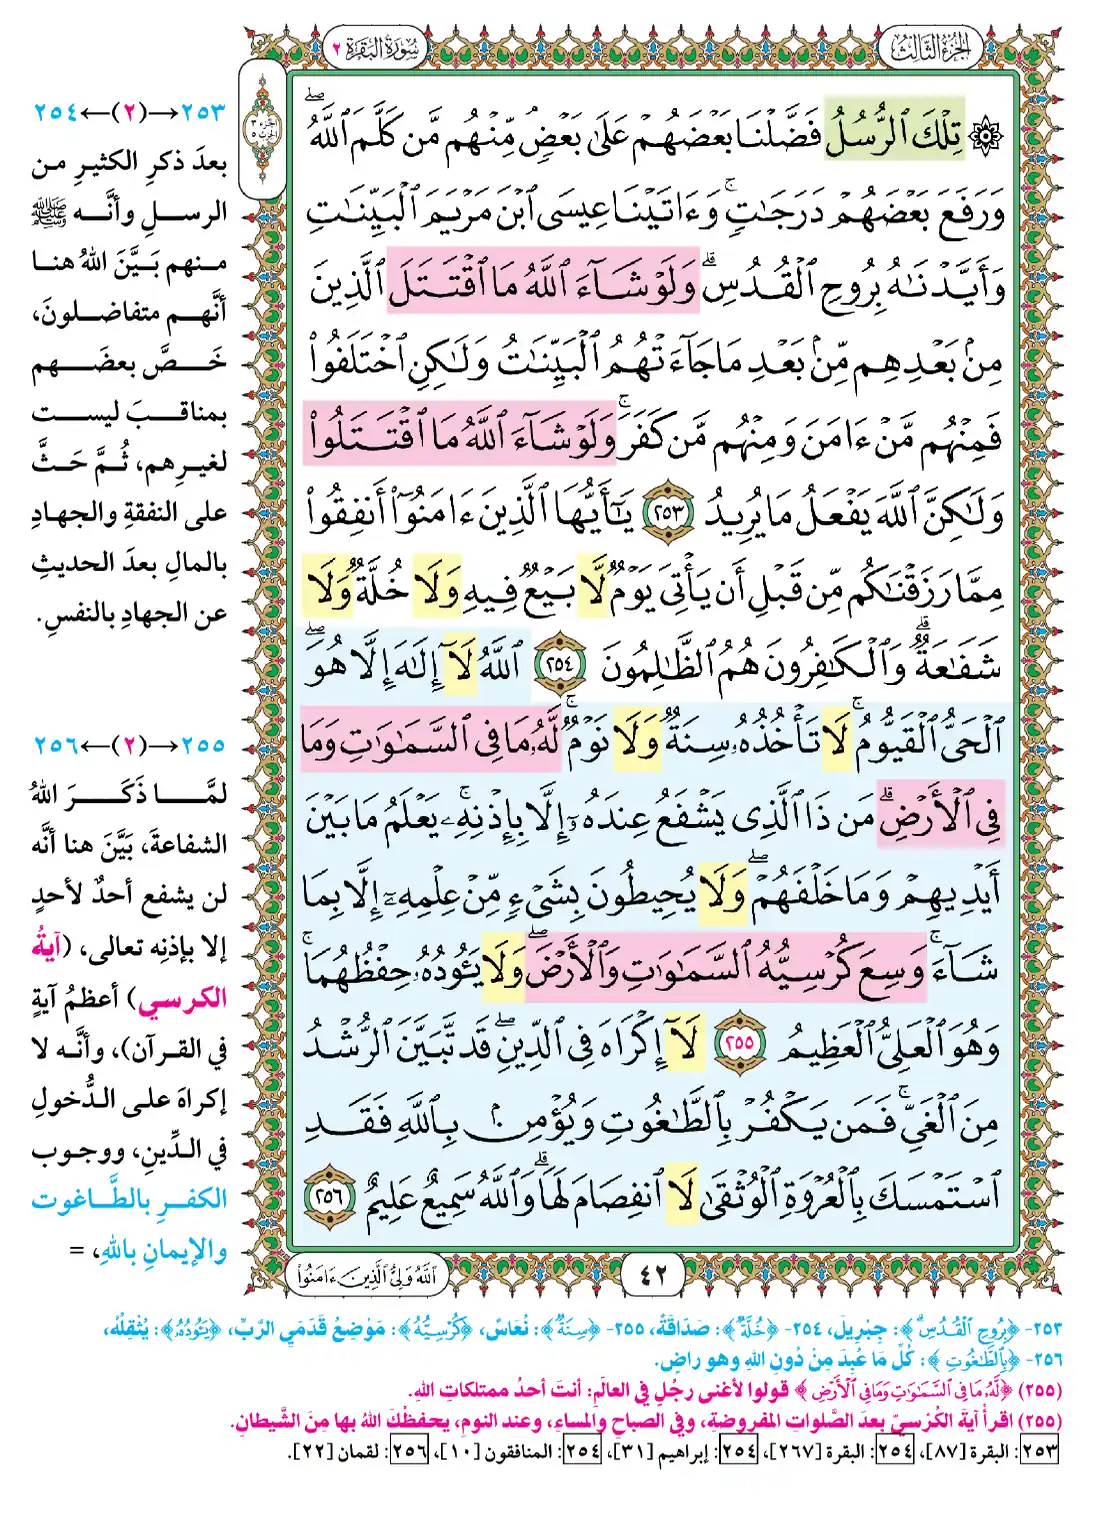 الجزء الثالث
سورة البقرة ٢
۞ تِلْكَ ٱلرُّسُلُ فَضَّلْنَا بَعْضَهُمْ عَلَىٰ بَعْضٍۘ مِّنْهُم مَّن كَلَّمَ ٱللَّهُۖ
وَرَفَعَ بَعْضَهُمْ دَرَجَٰتٍۚ وَءَاتَيْنَا عِيسَى ٱبْنَ مَرْيَمَ ٱلْبَيِّنَٰتِ
وَأَيَّدْنَٰهُ بِرُوحِ ٱلْقُدُسِۗ وَلَوْ شَآءَ ٱللَّهُ مَا ٱقْتَتَلَ ٱلَّذِينَ
مِنۢ بَعْدِهِم مِّنۢ بَعْدِ مَا جَآءَتْهُمُ ٱلْبَيِّنَٰتُ وَلَٰكِنِ ٱخْتَلَفُوا۟
فَمِنْهُم مَّنْ ءَامَنَ وَمِنْهُم مَّن كَفَرَۚ وَلَوْ شَآءَ ٱللَّهُ مَا ٱقْتَتَلُوا۟
وَلَٰكِنَّ ٱللَّهَ يَفْعَلُ مَا يُرِيدُ ٢٥٣ يَٰٓأَيُّهَا ٱلَّذِينَ ءَامَنُوٓا۟ أَنفِقُوا۟
مِمَّا رَزَقْنَٰكُم مِّن قَبْلِ أَن يَأْتِىَ يَوْمٌ لَّا بَيْعٌ فِيهِ وَلَا خُلَّةٌ وَلَا
شَفَٰعَةٌۗ وَٱلْكَٰفِرُونَ هُمُ ٱلظَّٰلِمُونَ ٢٥٤ ٱللَّهُ لَآ إِلَٰهَ إِلَّا هُوَۖ
ٱلْحَىُّ ٱلْقَيُّومُۚ لَا تَأْخُذُهُۥ سِنَةٌ وَلَا نَوْمٌۚ لَّهُۥ مَا فِى ٱلسَّمَٰوَٰتِ وَمَا
فِى ٱلْأَرْضِۗ مَن ذَا ٱلَّذِى يَشْفَعُ عِندَهُۥٓ إِلَّا بِإِذْنِهِۦۚ يَعْلَمُ مَا بَيْنَ
أَيْدِيهِمْ وَمَا خَلْفَهُمْۖ وَلَا يُحِيطُونَ بِشَىْءٍ مِّنْ عِلْمِهِۦٓ إِلَّا بِمَا
شَآءَۚ وَسِعَ كُرْسِيُّهُ ٱلسَّمَٰوَٰتِ وَٱلْأَرْضَۖ وَلَا يَـُٔودُهُۥ حِفْظُهُمَاۚ
وَهُوَ ٱلْعَلِىُّ ٱلْعَظِيمُ ٢٥٥ لَآ إِكْرَاهَ فِى ٱلدِّينِۖ قَد تَّبَيَّنَ ٱلرُّشْدُ
مِنَ ٱلْغَىِّۚ فَمَن يَكْفُرْ بِٱلطَّٰغُوتِ وَيُؤْمِنۢ بِٱللَّهِ فَقَدِ
ٱسْتَمْسَكَ بِٱلْعُرْوَةِ ٱلْوُثْقَىٰ لَا ٱنفِصَامَ لَهَاۗ وَٱللَّهُ سَمِيعٌ عَلِيمٌ ٢٥٦
٤٢
ٱللَّهُ وَلِىُّ ٱلَّذِينَ ءَامَنُوا۟
٢٥٣→(٢)←٢٥٤
بعدَ ذكرِ الكثيرِ من
الرسلِ وأنَّه ﷺ
منهم بَيَّنَ اللهُ هنا
أنَّهم متفاضلونَ،
خَصَّ بعضَهم
بمناقبَ ليست
لغيرِهم، ثُمَّ حَثَّ
على النفقةِ والجهادِ
بالمالِ بعدَ الحديثِ
عن الجهادِ بالنفسِ.
٢٥٥→(٢)←٢٥٦
لمَّا ذَكَرَ اللهُ
الشفاعةَ، بَيَّنَ هنا أنَّه
لن يشفع أحدٌ لأحدٍ
إلا بإذنِه تعالى، (آيةُ
الكرسي) أعظمُ آيةٍ
في القرآن)، وأنَّه لا
إكراهَ على الدُّخولِ
في الدِّينِ، ووجوب
الكفرِ بالطَّاغوت
والإيمانِ باللهِ، =
٢٥٣- ﴿بِرُوحِ ٱلْقُدُسِ﴾: جِبْرِيلَ، ٢٥٤- ﴿خُلَّةٌ﴾: صَدَاقَةٌ، ٢٥٥- ﴿سِنَةٌ﴾: نُعَاسٌ، ﴿كُرْسِيُّهُ﴾: مَوْضِعُ قَدَمَيِ الرَّبِّ، ﴿يَـُٔودُهُۥ﴾: يُثْقِلُهُ،
٢٥٦- ﴿بِٱلطَّٰغُوتِ﴾: كُلِّ مَا عُبِدَ مِنْ دُونِ اللهِ وهو راضٍ.
(٢٥٥) ﴿لَّهُۥ مَا فِى ٱلسَّمَٰوَٰتِ وَمَا فِى ٱلْأَرْضِ﴾ قولوا لأغنى رجُلٍ في العالَمِ: أنتَ أحدُ ممتلكاتِ اللهِ.
(٢٥٥) اقرأْ آيةَ الكُرْسيِّ بعدَ الصَّلواتِ المفروضةِ، وفي الصباحِ والمساءِ، وعند النومِ، يحفظْكَ اللهُ بها مِنَ الشَّيطانِ.
٢٥٣: البقرة [٨٧]، ٢٥٤: البقرة [٢٦٧]، ٢٥٤: إبراهيم [٣١]، ٢٥٤: المنافقون [١٠]، ٢٥٦: لقمان [٢٢].